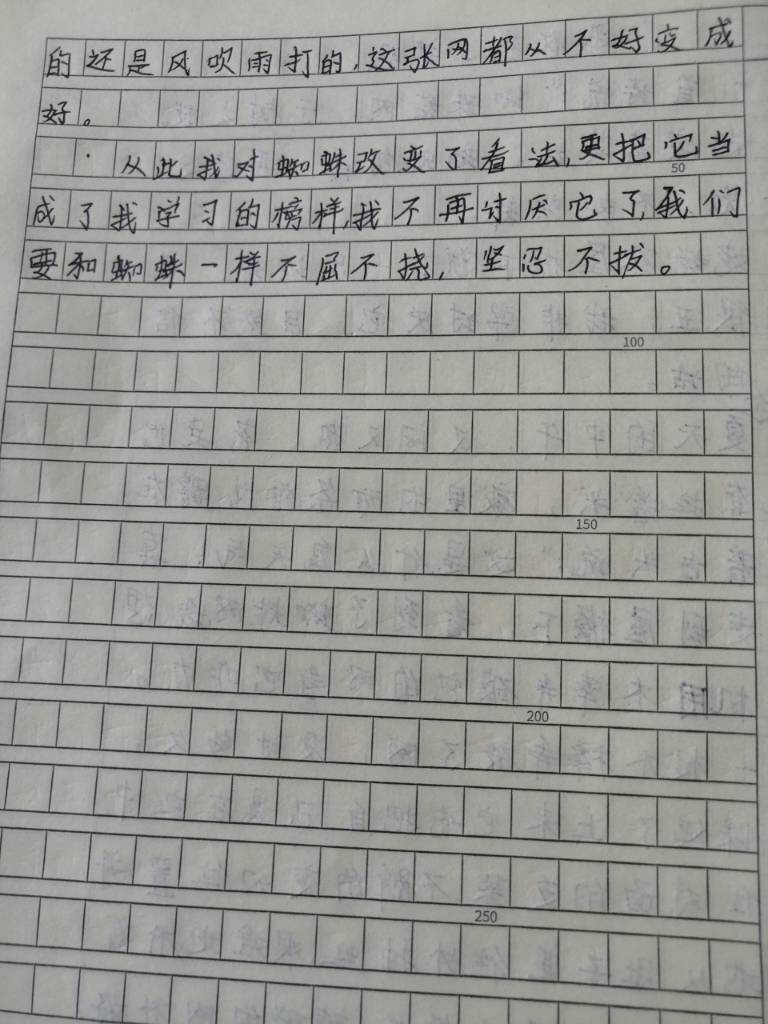 的还是风吹雨打的,这张网都从不好变成
好。
从此我对蜘蛛改变了看法,更把它当
50
成了我学习的榜样,我不再讨厌它了,我们
要和蜘蛛一样不屈不挠,坚忍不拔。
100
150
200
250